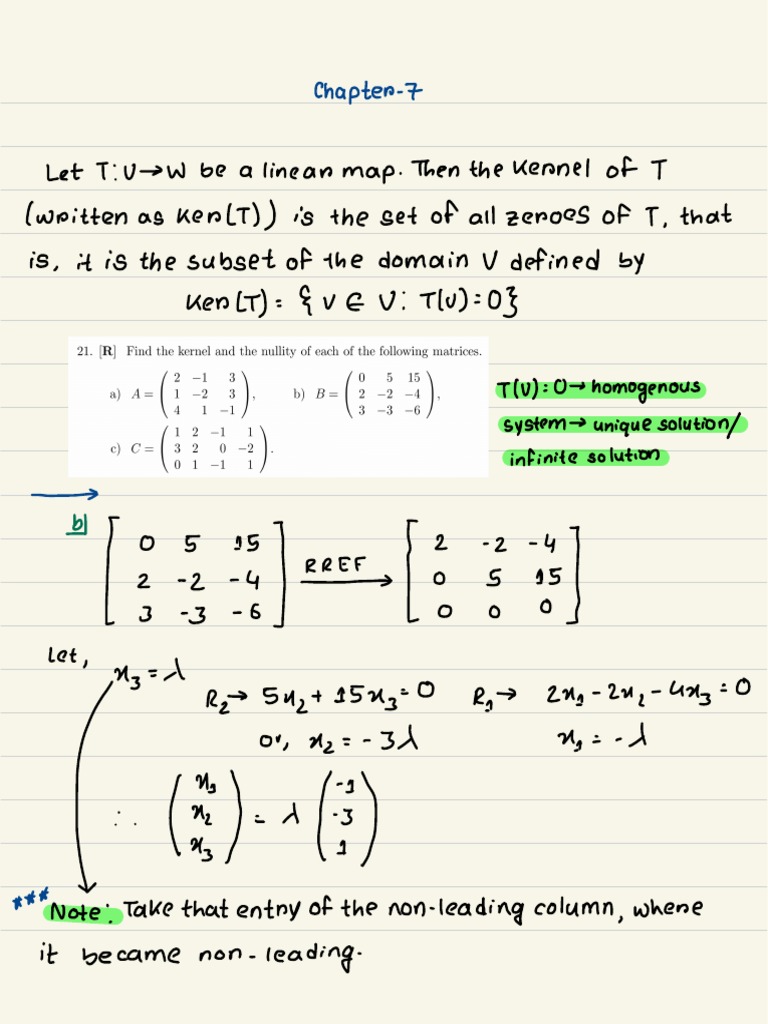 Chapter-7
Let T:V→W be a linear map. Then the Kernel of T
(written as Ker(T)) is the set of all zeroes of T, that
is, it is the subset of the domain V defined by
Ker(T) = { v ∈ V: T(v)=0}
21. [R] Find the kernel and the nullity of each of the following matrices.
a) A = ( 2 −1 3
1 −2 3
4 1 −1 ),
b) B = ( 0 5 15
2 −2 −4
3 −3 −6 ),
c) C = ( 1 2 −1 1
3 2 0 −2
0 1 −1 1 ).
T(v)=0→ homogenous
system→ unique solution/
infinite solution
b)
[ 0 5 15
2 -2 -4
3 -3 -6 ]
RREF
[ 2 -2 -4
0 5 15
0 0 0 ]
Let,
x₃ = λ
R₂→ 5x₂ + 15x₃ = 0
or, x₂ = -3λ
R₁→ 2x₁ - 2x₂ - 4x₃ = 0
x₁ = -λ
∴ ( x₁
x₂
x₃ ) = λ ( -1
-3
1 )
*** Note: Take that entry of the non-leading column, where
it became non-leading.